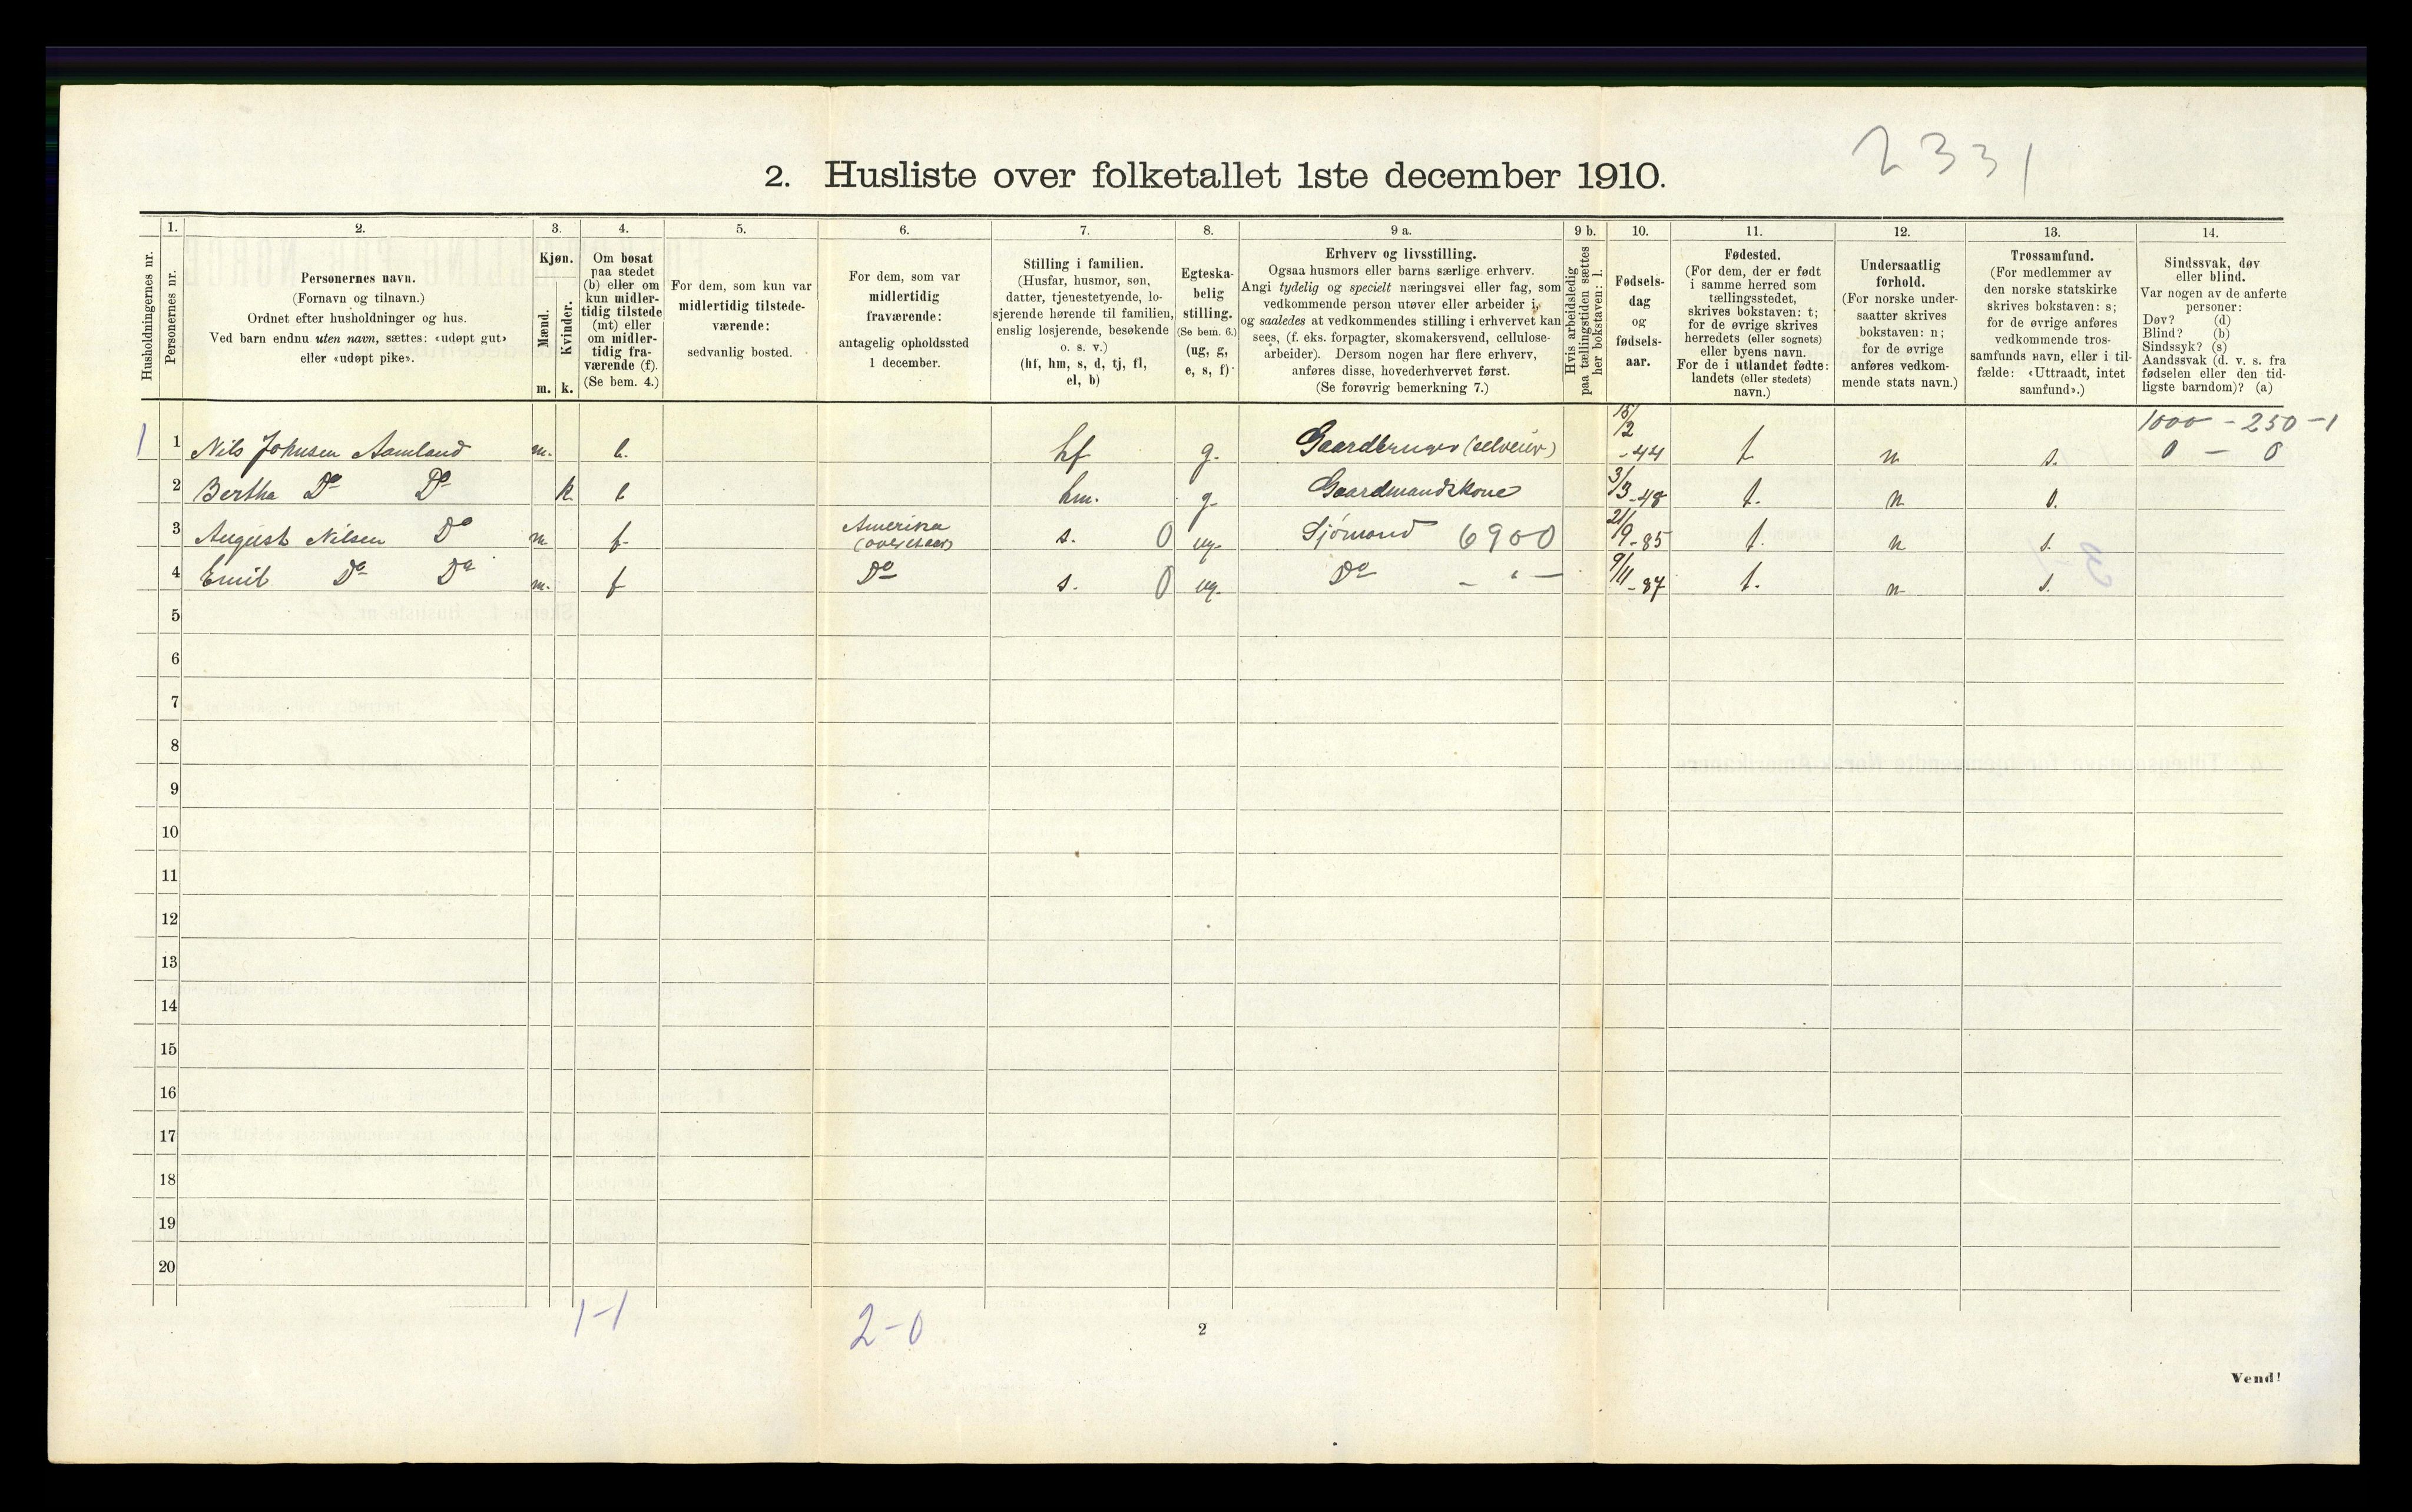 2331
2. Husliste over folketallet 1ste december 1910.
Husholdningernes nr.
1.
Personernes nr.
2.
Personernes navn.
(Fornavn og tilnavn.)
Ordnet efter husholdninger og hus.
Ved barn endnu uten navn, sættes: «udøpt gut»
eller «udøpt pike».
3.
Kjøn.
Mænd.
Kvinder.
m. k.
4.
Om bosat
paa stedet
(b) eller om
kun midler-
tidig tilstede
(mt) eller
om midler-
tidig fra-
værende (f).
(Se bem. 4.)
5.
For dem, som kun var
midlertidig tilstede-
værende:
sedvanlig bosted.
6.
For dem, som var
midlertidig
fraværende:
antagelig opholdssted
1 december.
7.
Stilling i familien.
(Husfar, husmor, søn,
datter, tjenestetyende, lo-
sjerende hørende til familien,
enslig losjerende, besøkende
o. s. v.)
(hf, hm, s, d, tj, fl,
el, b)
8.
Egteska-
belig
stilling.
(Se bem. 6.)
(ug, g,
e, s, f)
9 a.
Erhverv og livsstilling.
Ogsaa husmors eller barns særlige erhverv.
Angi tydelig og specielt næringsvei eller fag, som
vedkommende person utøver eller arbeider i,
og saaledes at vedkommendes stilling i erhvervet kan
sees, (f. eks. forpagter, skomakersvend, cellulose-
arbeider). Dersom nogen har flere erhverv,
anføres disse, hovederhvervet først.
(Se forøvrig bemerkning 7.)
9 b.
Hvis arbeidsledig
paa tællingstiden sættes
her bokstaven: l.
10.
Fødsels-
dag
og
fødsels-
aar.
11.
Fødested.
(For dem, der er født
i samme herred som
tællingsstedet,
skrives bokstaven: t;
for de øvrige skrives
herredets (eller sognets)
eller byens navn.
For de i utlandet fødte:
landets (eller stedets)
navn.)
12.
Undersaatlig
forhold.
(For norske under-
saatter skrives
bokstaven: n;
for de øvrige
anføres vedkom-
mende stats navn.)
13.
Trossamfund.
(For medlemmer av
den norske statskirke
skrives bokstaven: s;
for de øvrige anføres
vedkommende tros-
samfunds navn, eller i til-
fælde: «Uttraadt, intet
samfund».)
14.
Sindssvak, døv
eller blind.
Var nogen av de anførte
personer:
Døv? (d)
Blind? (b)
Sindssyk? (s)
Aandssvak (d. v. s. fra
fødselen eller den tid-
ligste barndom)? (a)
1000 - 250 - 1
0 - 0
1 1 Nils Johnsen Aamland m. b. hf g. Gaardbruger (selveier) 15/2 -44 t. n s.
2 Bertha Do Do k b hm. g. Gaardmandskone 3/3-48 t. n s.
3 August Nilsen Do m f Amerika s. 0 ug. Sjømand 6900 21/9-85 t. n s.
4 Emil Do Do m. f Do s. 0 ug. Do - " - 9/11-87 t. n s.
5
6
7
8
9
10
11
12
13
14
15
16
17
18
19
20
1-1
2-0
2
Vend!